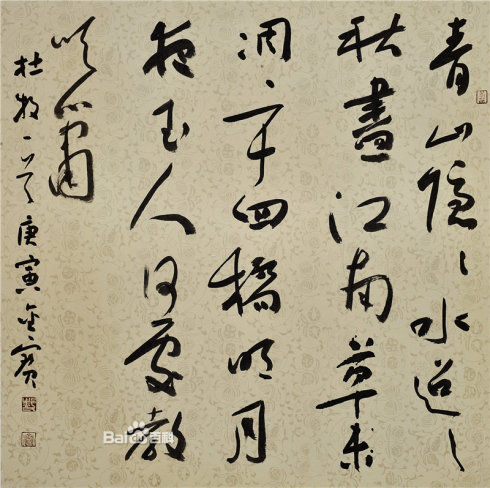 青山隱〻水迢〻
秋盡江南草未
凋二十四橋明月
夜玉人何處教
吹簫
杜牧一首庚寅
Baidu百科